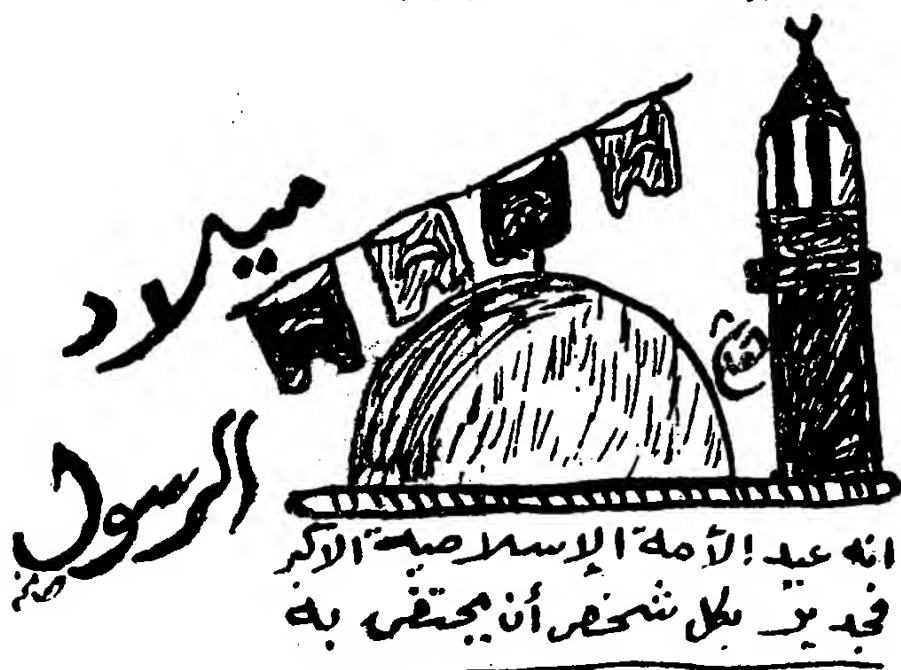 ميلاد
الرسول
انه عيد الأمة الإسلامية الاكبر
فجدير بكل شخص أن يحتفى به